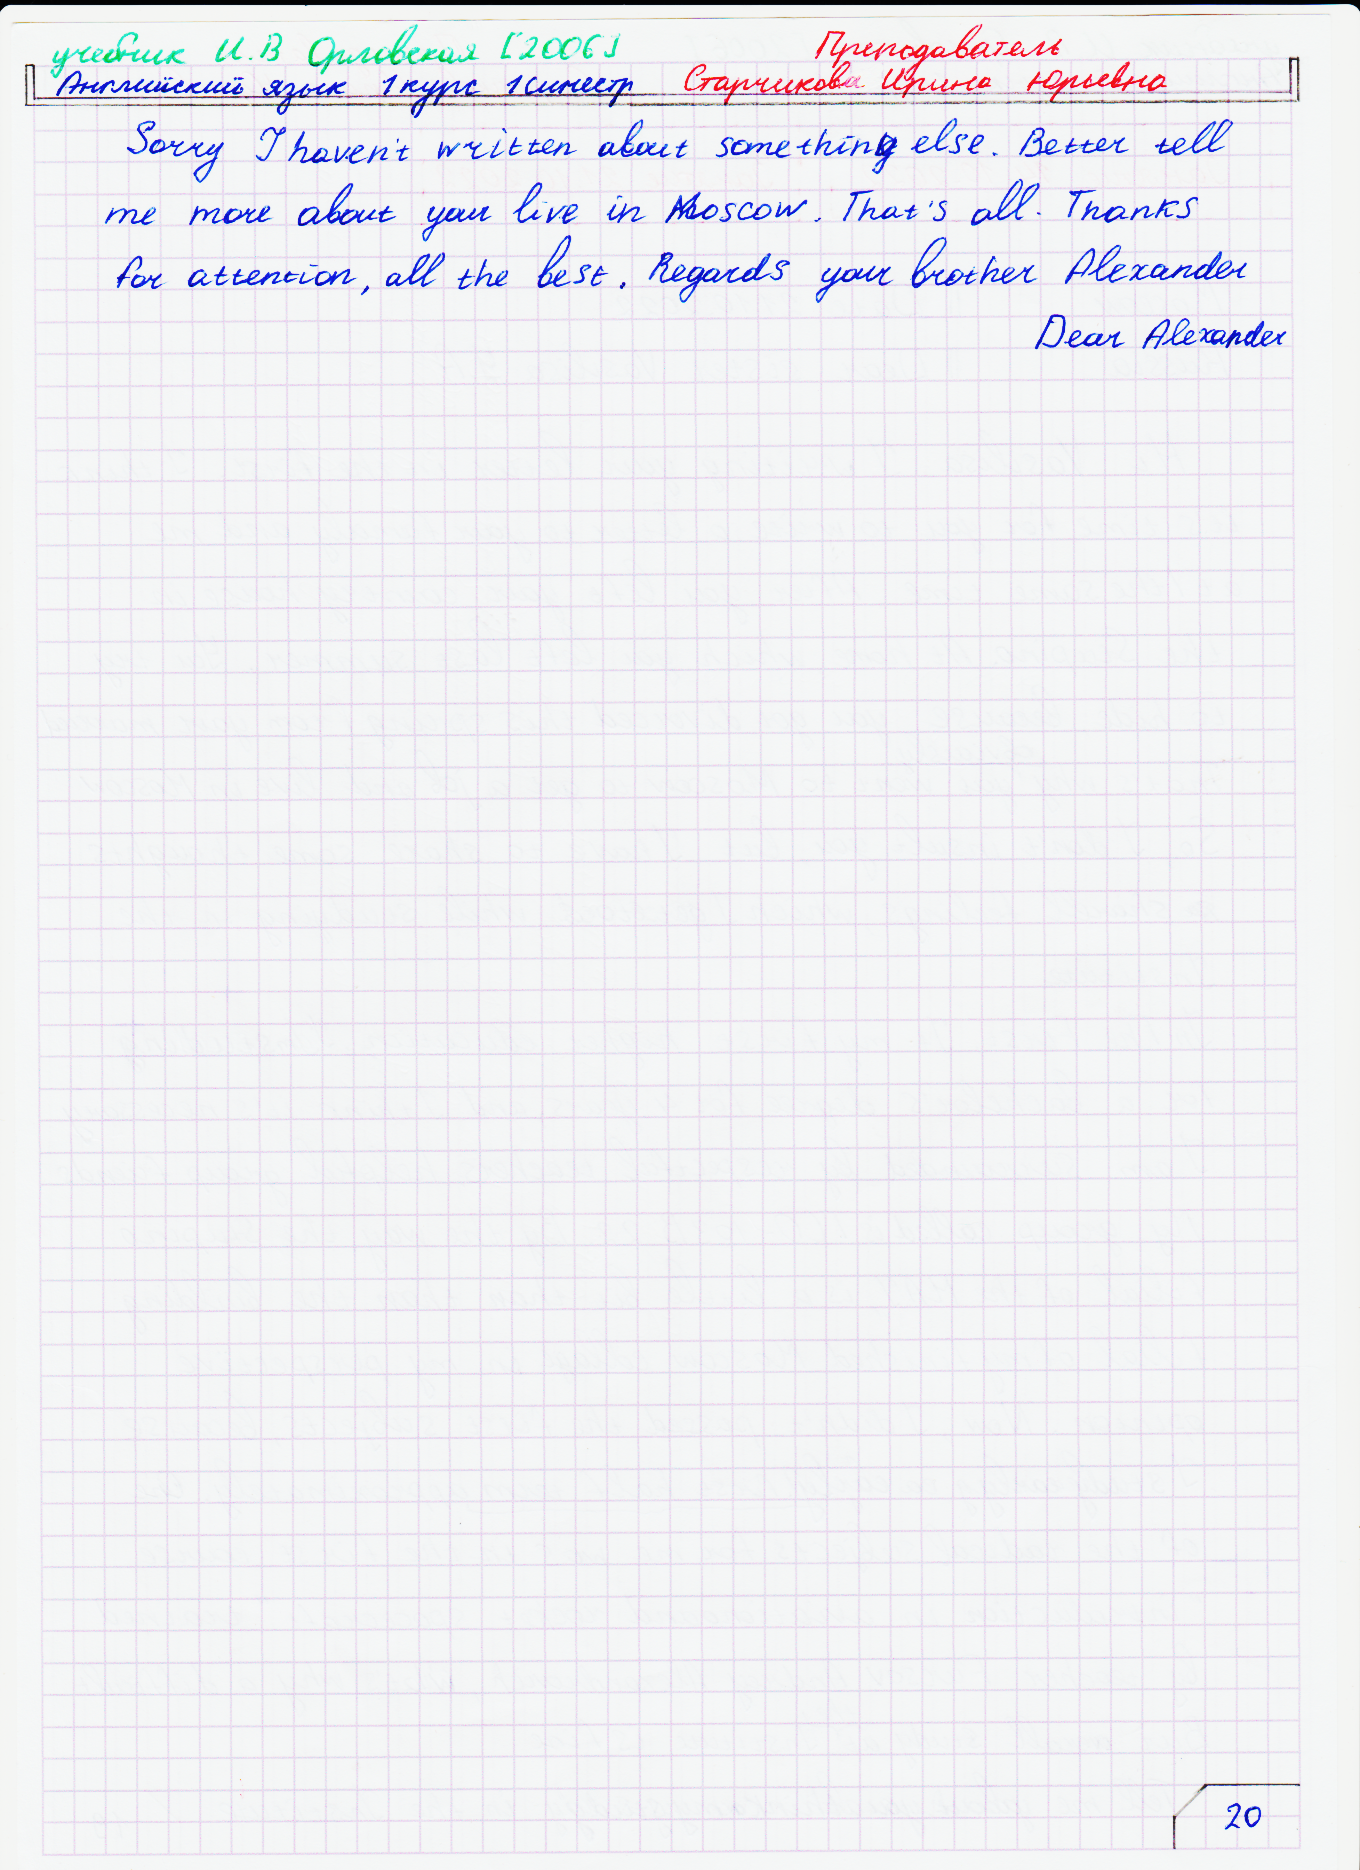 учебник И.В Орловская [2006]
Преподаватель
Английский язык 1 курс 1 симестр Старчикова Ирина Юрьевна
Sorry I haven't written about something else. Better tell
me more about your live in Moscow. That's all. Thanks
for attention, all the best. Regards your brother Alexander
Dear Alexander
20